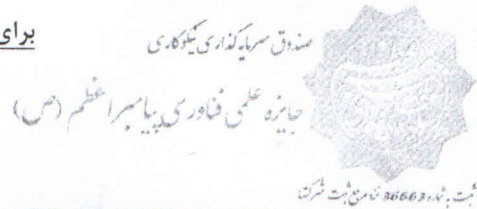 برای
صندوق سرمایه گذاری نیکوکاری
جایزه علمی فناوری پیامبر اعظم (ص)
ثبت به شماره 36663 نزد مرجع ثبت شرکتها